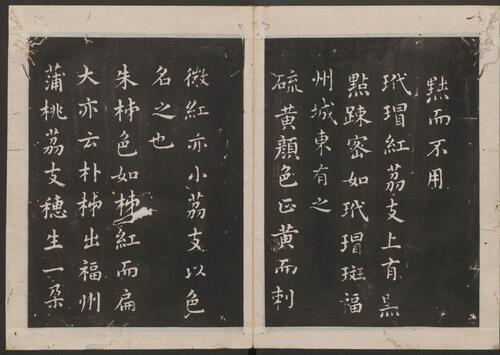 㸃而不用
玳瑁紅荔支上有黒
㸃踈密如玳瑁斑福
州城東有之
硫黄顔色正黄而刺
微紅亦小荔支以色
名之也
朱柿色如柿紅而扁
大亦云朴柿出福州
蒲桃荔支穗生一朶